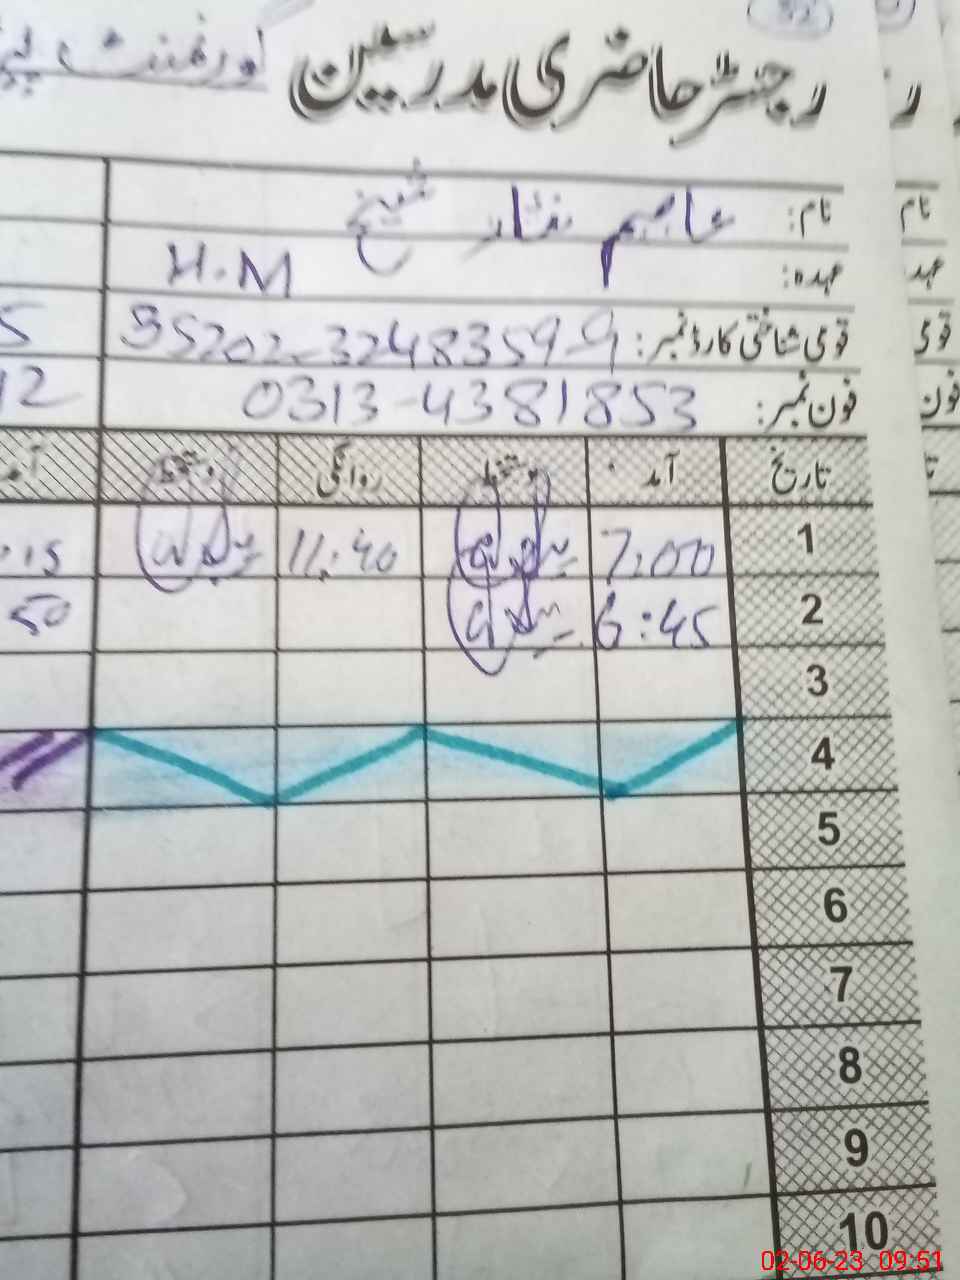 رجسٹر حاضری مدرسین گورنمنٹ
نام: عاصم نثار شیخ
عہدہ: H.M
قومی شناختی کارڈ نمبر: 35202-3248359-9
فون نمبر: 0313-4381853
تاریخ آمد دستخط روانگی دستخط
1 7:00 11:40
2 6:45
3
4
5
6
7
8
9
10
02-06-23 09:51